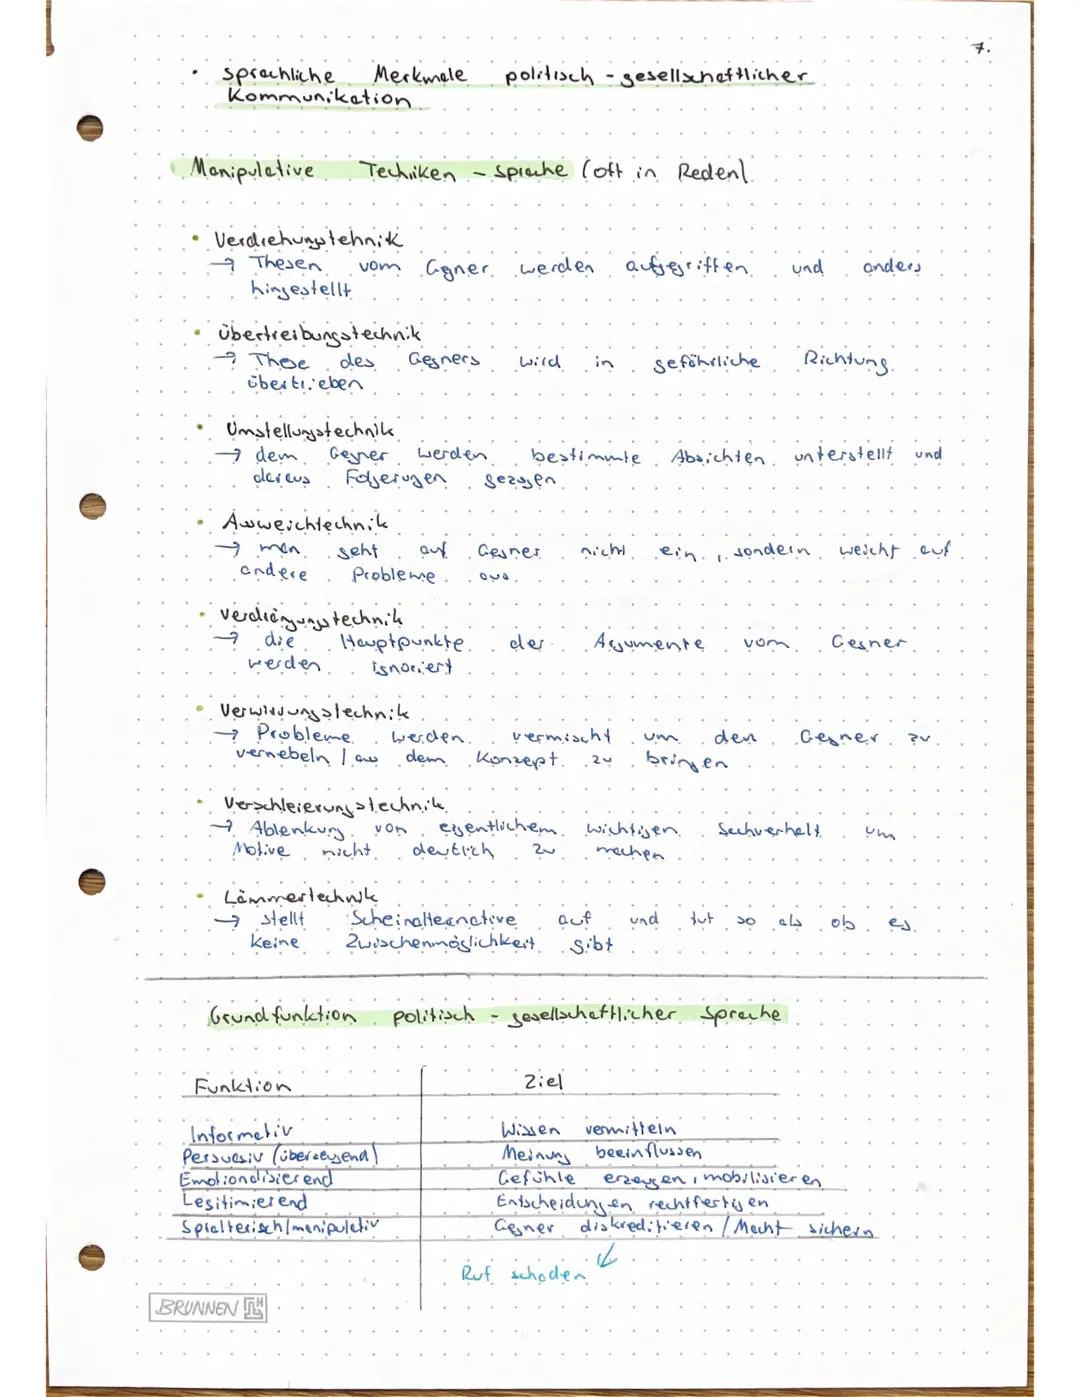 7.
• sprachliche Merkmale politisch - gesellschaftlicher
Kommunikation
Manipulative Techniken - Sprache (oft in Reden)
• Verdrehungstehnik
→ Thesen vom Gegner werden aufgegriffen und anders
hingestellt
• Übertreibungstechnik
→ These des Gegners wird in gefährliche Richtung
übertrieben
• Umstellungstechnik
→ dem Gegner werden bestimmte Absichten unterstellt und
daraus Folgerugen gezogen
• Ausweichtechnik
→ man geht auf Gegner nicht ein, sondern weicht auf
andere Probleme aus.
• Verdrängungstechnik
→ die Hauptpunkte der Argumente vom Gegner
werden ignoriert
• Verwirrungstechnik
→ Probleme werden vermischt um den Gegner zu
vernebeln / aus dem Konzept zu bringen
• Verschleierungstechnik
→ Ablenkung von eigentlichem wichtigen Sachverhalt um
Motive nicht deutlich zu machen
• Lämmertechnik
→ stellt Scheinalternative auf und tut so als ob es
keine Zwischenmöglichkeit gibt
Grundfunktion politisch - gesellschaftlicher Sprache
Funktion Ziel
Informativ Wissen vermitteln
Persuasiv (überzeugend) Meinung beeinflussen
Emotionalisierend Gefühle erzeugen, mobilisieren
Legitimierend Entscheidungen rechtfertigen
Spialterisch/manipulativ Gegner diskreditieren / Macht sichern
Ruf schaden
BRUNNEN